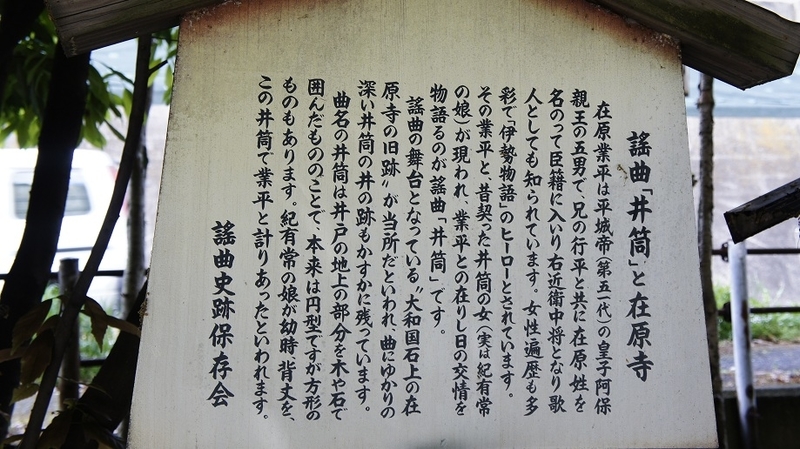 謡曲「井筒」と在原寺
在原業平は平城帝(第五一代)の皇子阿保
親王の五男で、兄の行平と共に在原姓を
名のって臣籍に入いり右近衛中将となり歌
人としても知られています。女性遍歴も多
彩で「伊勢物語」のヒーローとされています。
その業平と、昔契った井筒の女(実は紀有常
の娘)が現われ、業平との在りし日の交情を
物語るのが謡曲「井筒」です。
謡曲の舞台となっている〝大和国石上の在
原寺の旧跡〟が当所だといわれ、曲にゆかりの
深い井筒の井の跡もかすかに残っています。
曲名の井筒は井戸の地上の部分を木や石で
囲んだもののことで、本来は円型ですが方形の
ものもあります。紀有常の娘が幼時背丈を、
この井筒で業平と計りあったといわれます。
謡曲史跡保存会